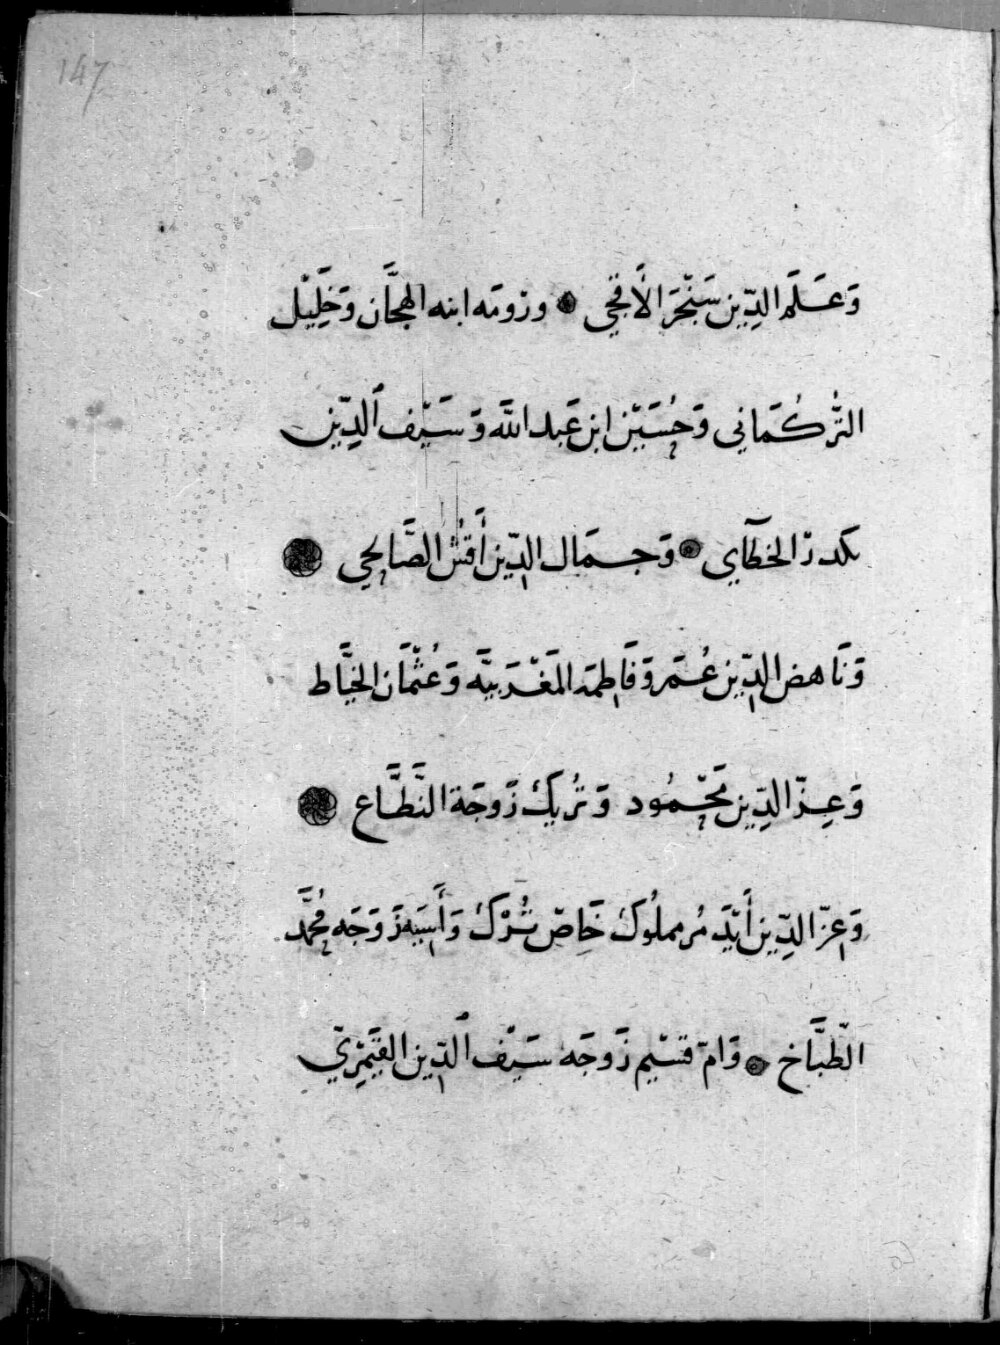 147
وَعَلَم الدِّين سَنْجَر الأَفجي ورُومَه ابنه الهجَّان وَخَلِيْل
التُّركُمَاني وَحُسَيْن ابن عَبد اللّه وَسَيْف الدِّين
بكدر الخطآي وَجمَال الدِّين أَقُش الصَّالحي
وَنَاهض الدِّين عُمَر وَفَاطمَه المَغْرَبيَّه وَعُثْمَان الخيَّاط
وَعِزّ الدِّين مَحْمُود وَتُريك زَوجَة النَّطَّاع
وَعِزّ الدِّين أَيْدَمُر مملُوك خَاصّ تُرْك وَأَسيَه زَوَجَه مُحمَّد
الطبَّاخ وَامّ قسيْم زَوجَه سَيْف الدِّين القَيْمُريّ